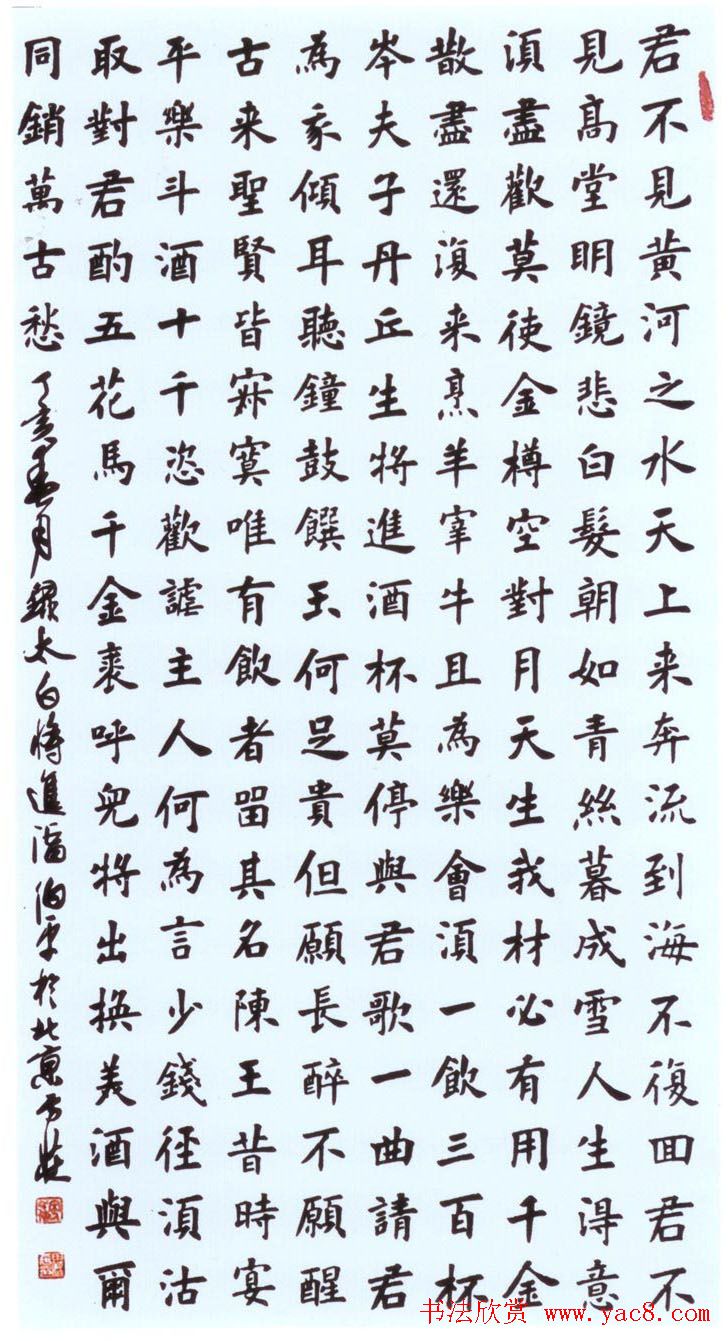 君不見黄河之水天上来奔流到海不復回君不
見高堂明鏡悲白髮朝如青絲暮成雪人生得意
須盡歡莫使金樽空對月天生我材必有用千金
散盡還復来烹羊宰牛且為樂會須一飲三百杯
岑夫子丹丘生將進酒杯莫停與君歌一曲請君
為我傾耳聽鐘鼓饌玉何足貴但願長醉不願醒
古来聖賢皆寂寞唯有飲者留其名陳王昔時宴
平樂斗酒十千恣歡謔主人何為言少錢徑須沽
取對君酌五花馬千金裘呼兒將出換美酒與爾
同銷萬古愁 丁亥春月録太白將進酒伯平於北京方莊
书法欣赏 www.yac8.com